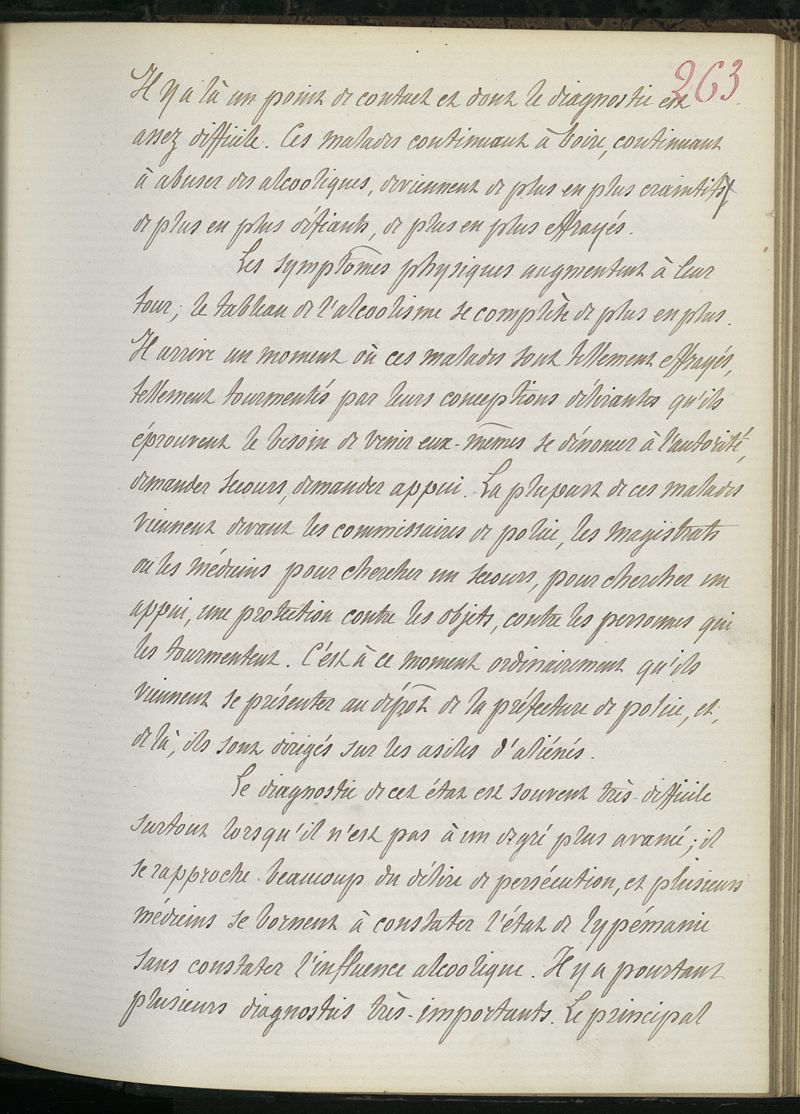 263
Il y a là un point de contact et dont le diagnostic est
assez difficile. Ces malades continuant à boire, continuant
à abuser des alcooliques, deviennent de plus en plus craintifs,
de plus en plus défiants, de plus en plus effrayés.
Les symptômes physiques augmentent à leur
tour; le tableau de l'alcoolisme se complète de plus en plus.
Il arrive un moment où ces malades sont tellement effrayés,
tellement tourmentés par leurs conceptions délirantes qu'ils
éprouvent le besoin de venir eux-mêmes se dénoncer à l'autorité,
demander secours, demander appui. La plupart de ces malades
viennent devant les commissaires de police, les magistrats
ou les médecins pour chercher un secours, pour chercher un
appui, une protection contre les objets, contre les personnes qui
les tourmentent. C'est à ce moment ordinairement qu'ils
viennent se présenter au dépôt de la préfecture de police, et,
de là, ils sont dirigés sur les asiles d'aliénés.
Le diagnostic de cet état est souvent très-difficile
surtout lorsqu'il n'est pas à un degré plus avancé; il
se rapproche beaucoup du délire de persécution, et plusieurs
médecins se bornent à constater l'état de lypémanie
sans constater l'influence alcoolique. Il y a pourtant
plusieurs diagnostics très-importants. Le principal